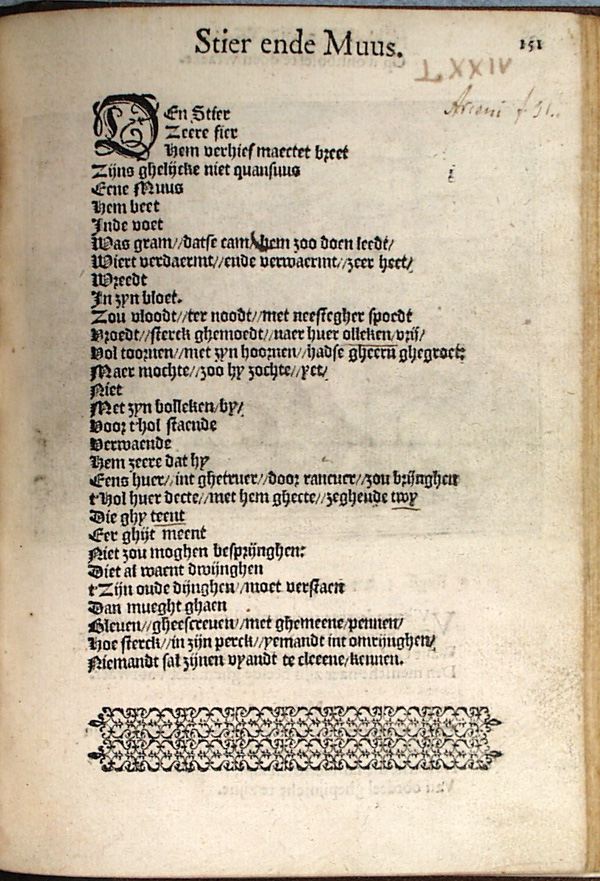 Stier ende Muus.
151
LXXIV
EEn Stier
Zeere fier
Hem verhief maectet breet
Zijns ghelijcke niet quansuus
Eene Muus
Hem beet
Inde voet
Was gram//datse cam hem zoo doen leedt/
Wiert verdaermt//ende verwaermt//zeer heet/
Wreedt
In zyn bloet.
Zou vloodt//ter noodt//met neestegher spoedt
Vroedt//sterck ghemoedt//naer huer olleken/vrij/
Vol toornen//met zyn hoornen//hadse gheern ghegroet:
Maer mochte//zoo hy zochte//yet/
Niet
Met zyn bolleken/by/
Voor t'hol staende
Verwaende
Hem zeere dat hy
Eens huer//int ghetruer//door rancuer//zou brijnghen
t'Hol huer decte//met hem ghecte//zeghende twy
Die ghy teent
Eer ghijt meent
Niet zou moghen besprijnghen:
Diet al waent dwijnghen
t'Zijn oude dijnghen/moet verstaen
Dan mueght ghaen
Gleuen//gheescreuen//met ghemeene/pennen/
Hoe sterck//in zijn perck//yemandt int omrijnghen/
Niemandt sal zijnen vyandt te cleeene/kennen.